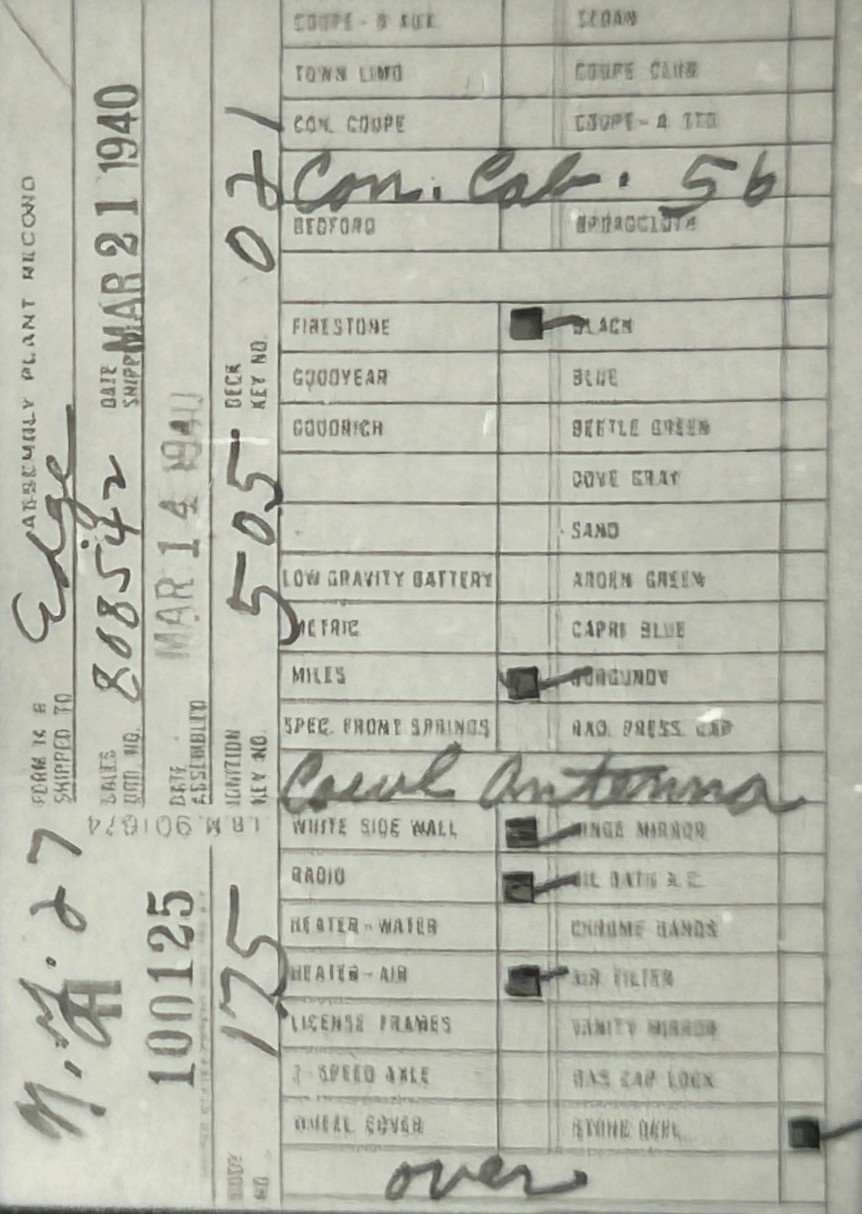 FORM 16 B ASSEMBLY PLANT RECORD
SHIPPED TO Edge
SALES ORD. NO. 808542 DATE SHIPPED MAR 21 1940
DATE ASSEMBLED MAR 14 1940
IGNITION KEY NO. 505 DECK KEY NO. 021
N.Y. 27
H
100125
BODY NO 175
COUPE - 5 AUX SEDAN
TOWN LIMO COUPE CLUB
CON. COUPE COUPE -
Con. Cab. 56
BEDFORD
FIRESTONE BLACK
GOODYEAR BLUE
GOODRICH BEETLE GREEN
DOVE GRAY
SAND
LOW GRAVITY BATTERY ARDEN GREEN
METRIC CAPRI BLUE
MILES BURGUNDY
SPEC. FRONT SPRINGS RAD. PRESS. CAP
Cowl Antenna
WHITE SIDE WALL HINGE MIRROR
RADIO OIL BATH A.C.
HEATER-WATER CHROME BANDS
HEATER-AIR AIR FILTER
LICENSE FRAMES VANITY MIRROR
2-SPEED AXLE GAS CAP LOCK
WHEEL COVER STONE DEFL.
over